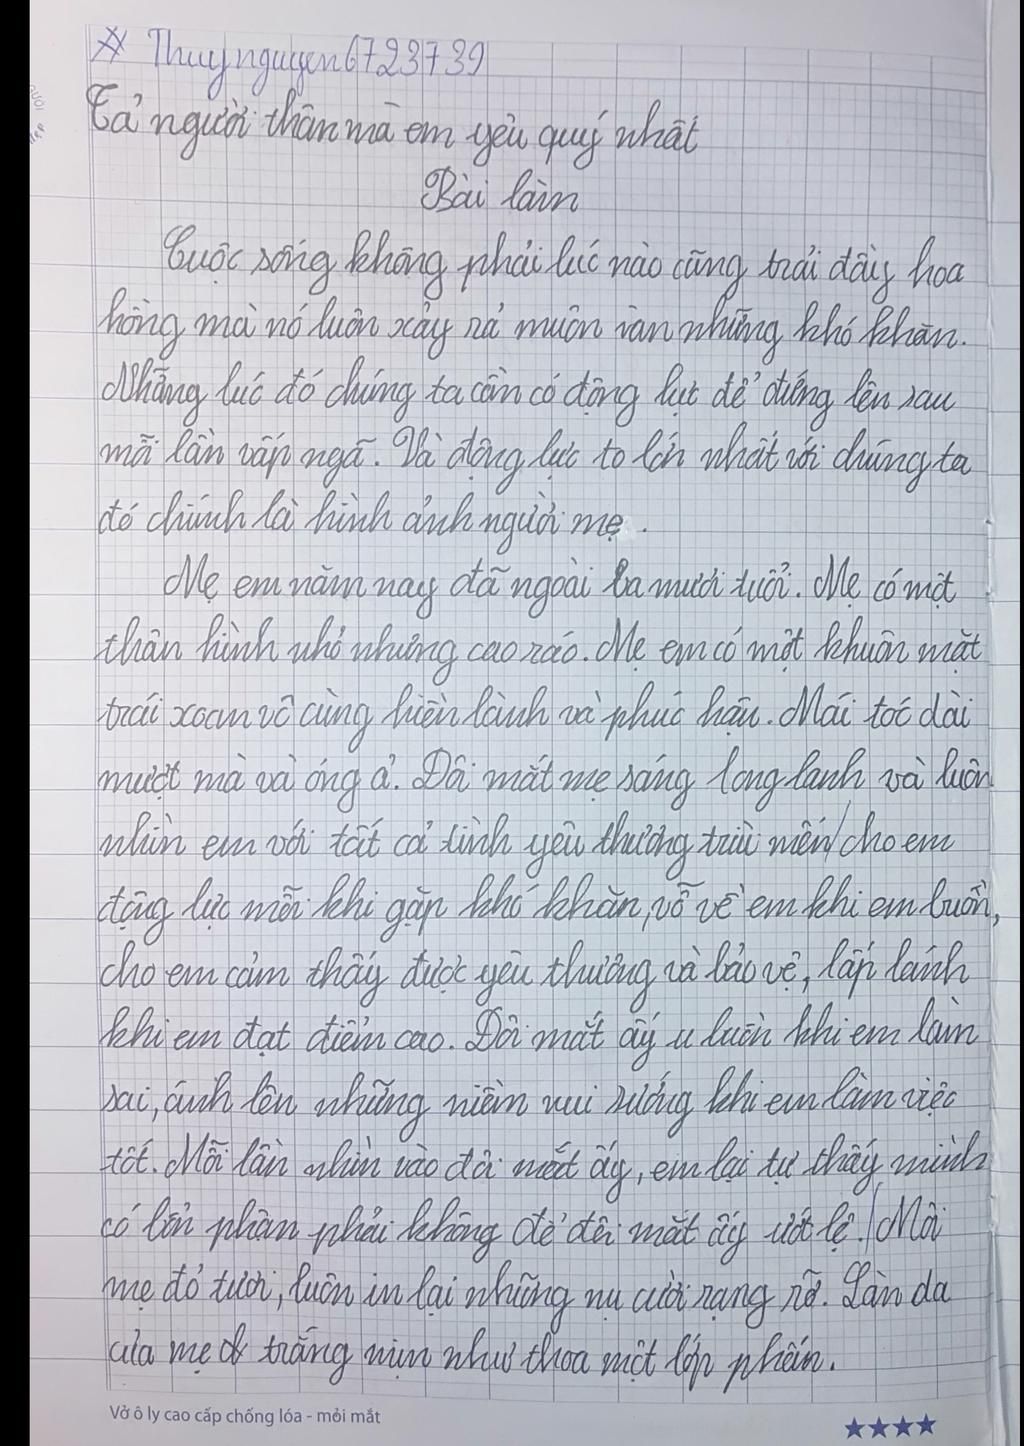 Thuynguyen6723739
Tả người thân mà em yêu quý nhất
Bài làm
Cuộc sống không phải lúc nào cũng trải đầy hoa
hồng mà nó luôn xảy ra muôn vàn những khó khăn.
Những lúc đó chúng ta cần có động lực để đứng lên sau
mỗi lần vấp ngã. Và động lực to lớn nhất với chúng ta
đó chính là hình ảnh người mẹ.
Mẹ em năm nay đã ngoài ba mươi tuổi. Mẹ có một
thân hình nhỏ nhưng cao ráo. Mẹ em có một khuôn mặt
trái xoan vô cùng hiền lành và phúc hậu. Mái tóc dài
mượt mà và óng ả. Đôi mắt mẹ sáng long lanh và luôn
nhìn em với tất cả tình yêu thương trìu mến/cho em
động lực mỗi khi gặp khó khăn, vỗ về em khi em buồn,
cho em cảm thấy được yêu thương và bảo vệ, lấp lánh
khi em đạt điểm cao. Đôi mắt ấy u buồn khi em làm
sai, ánh lên những niềm vui sướng khi em làm việc
tốt. Mỗi lần nhìn vào đôi mắt ấy, em lại tự thấy mình
có bổn phận phải không để đôi mắt ấy ướt lệ./Môi
mẹ đỏ tươi, luôn in lại những nụ cười rạng rỡ. Làn da
của mẹ trắng mịn như thoa một lớp phấn.
Vở ô ly cao cấp chống lóa - mỏi mắt